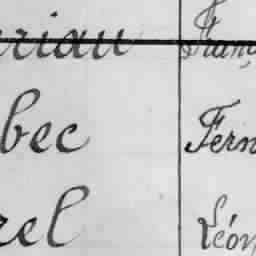 rian Franç
bec Fern
rel Léon